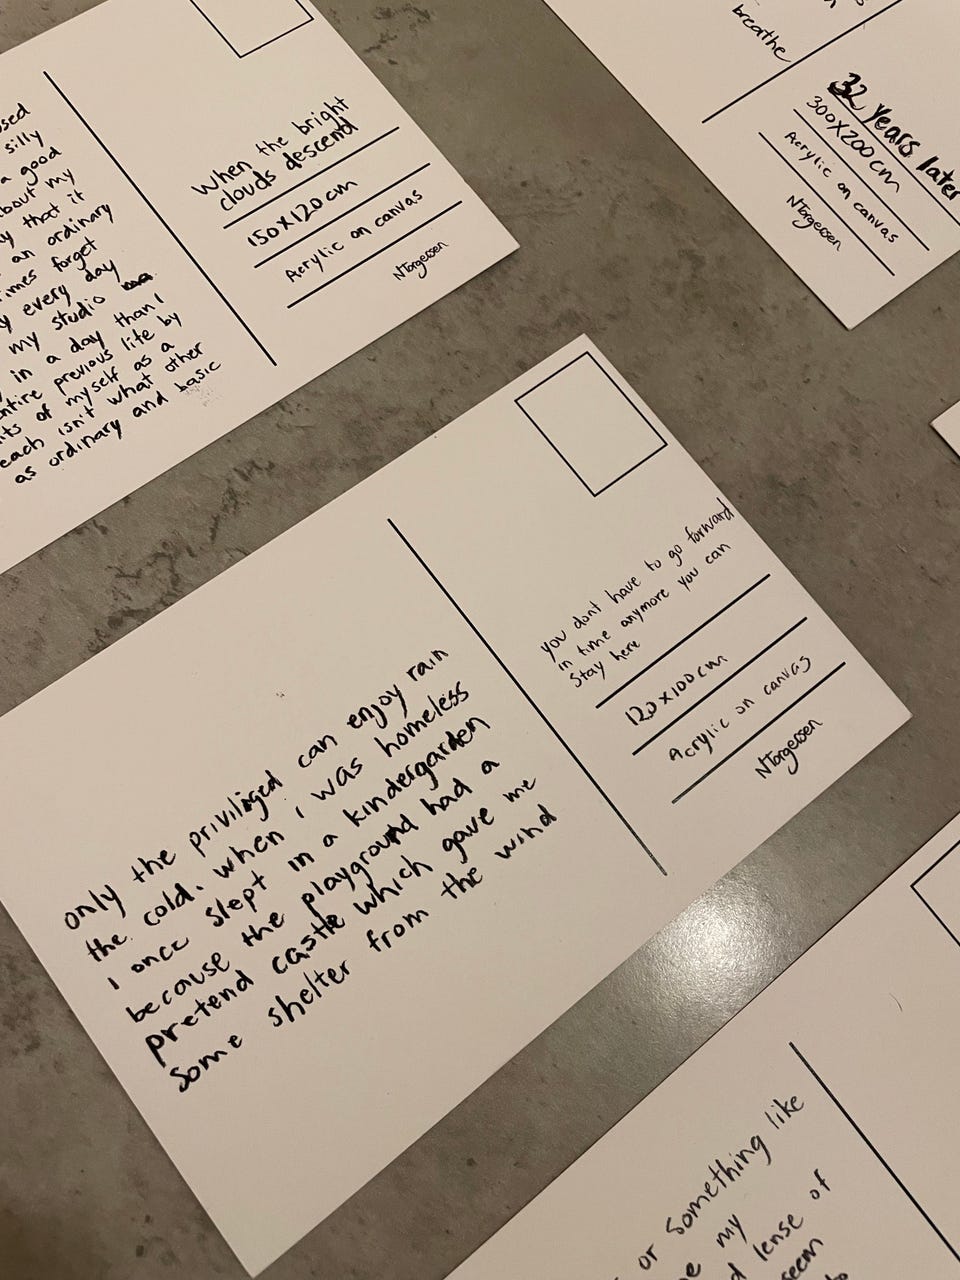 used
silly
a good
about my
that it
an ordinary
forget
every day
my studio
in a day than I
entire previous life by
of myself as a
each isn't what other
as ordinary and basic
When the bright
clouds descend
150x120cm
Acrylic on canvas
NTorgersen
breathe
32 Years later
300x200cm
Acrylic on canvas
NTorgersen
only the priviliged can enjoy rain
the cold. when i was homeless
I once slept in a kindergarden
because the playground had a
pretend castle which gave me
some shelter from the wind
you dont have to go forward
in time anymore you can
Stay here
120x100cm
Acrylic on canvas
NTorgersen
or Something like
my
lense of
seem